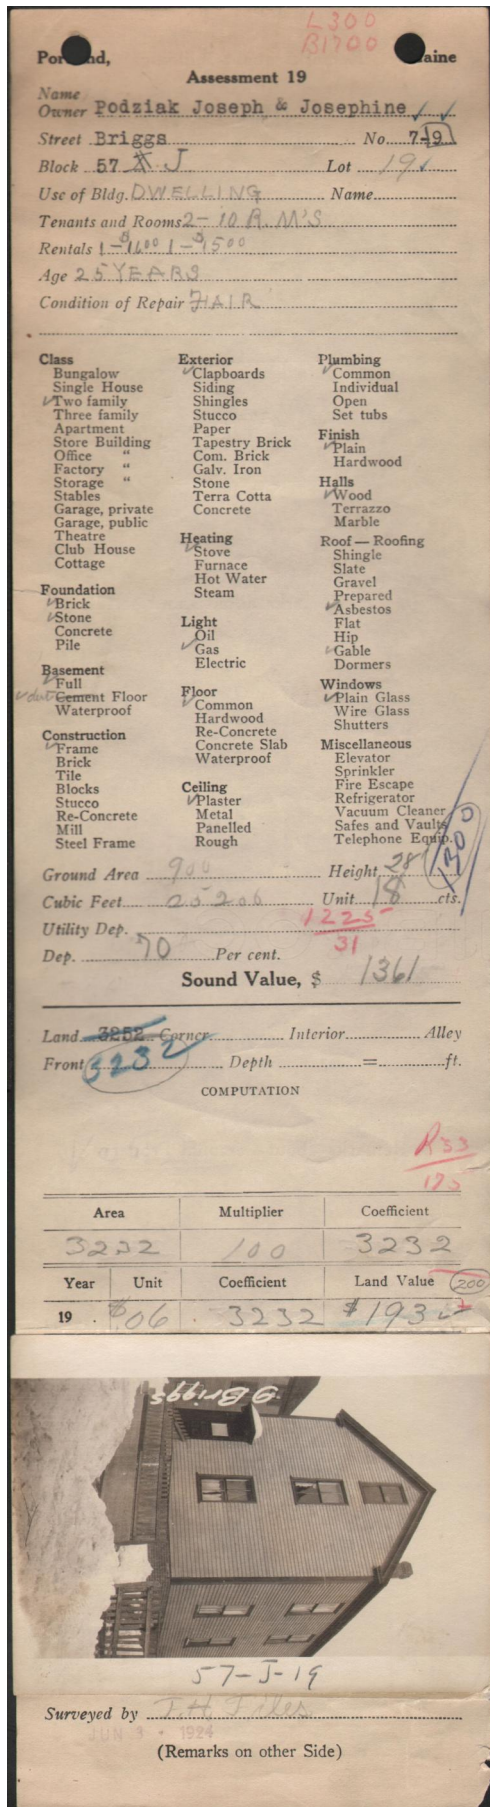 L300
B1700
Portland, Maine
Assessment 19
Name
Owner Podziak Joseph & Josephine
Street Briggs No. 7-9
Block 57 J Lot 19
Use of Bldg. DWELLING Name
Tenants and Rooms 2-10 R.M'S
Rentals 1-$1600 1-$1500
Age 25 YEARS
Condition of Repair FAIR
Class
Bungalow
Single House
Two family
Three family
Apartment
Store Building
Office "
Factory "
Storage "
Stables
Garage, private
Garage, public
Theatre
Club House
Cottage
Foundation
Brick
Stone
Concrete
Pile
Basement
Full
Cement Floor
Waterproof
Construction
Frame
Brick
Tile
Blocks
Stucco
Re-Concrete
Mill
Steel Frame
Exterior
Clapboards
Siding
Shingles
Stucco
Paper
Tapestry Brick
Com. Brick
Galv. Iron
Stone
Terra Cotta
Concrete
Heating
Stove
Furnace
Hot Water
Steam
Light
Oil
Gas
Electric
Floor
Common
Hardwood
Re-Concrete
Concrete Slab
Waterproof
Ceiling
Plaster
Metal
Panelled
Rough
Plumbing
Common
Individual
Open
Set tubs
Finish
Plain
Hardwood
Halls
Wood
Terrazzo
Marble
Roof — Roofing
Shingle
Slate
Gravel
Prepared
Asbestos
Flat
Hip
Gable
Dormers
Windows
Plain Glass
Wire Glass
Shutters
Miscellaneous
Elevator
Sprinkler
Fire Escape
Refrigerator
Vacuum Cleaner
Safes and Vaults
Telephone Equip.
1300
Ground Area 900 Height 28
Cubic Feet 25200 Unit 18 cts.
Utility Dep. 1225
31
Dep. 70 Per cent.
Sound Value, $ 1361
Land 3252 Corner Interior Alley
Front 3232 Depth = ft.
COMPUTATION
R33
175
Area Multiplier Coefficient
3232 100 3232
Year Unit Coefficient Land Value 200
19 $.06 3232 $193
9 Briggs
57-J-19
Surveyed by T.H. Files
JUN 1924
(Remarks on other Side)